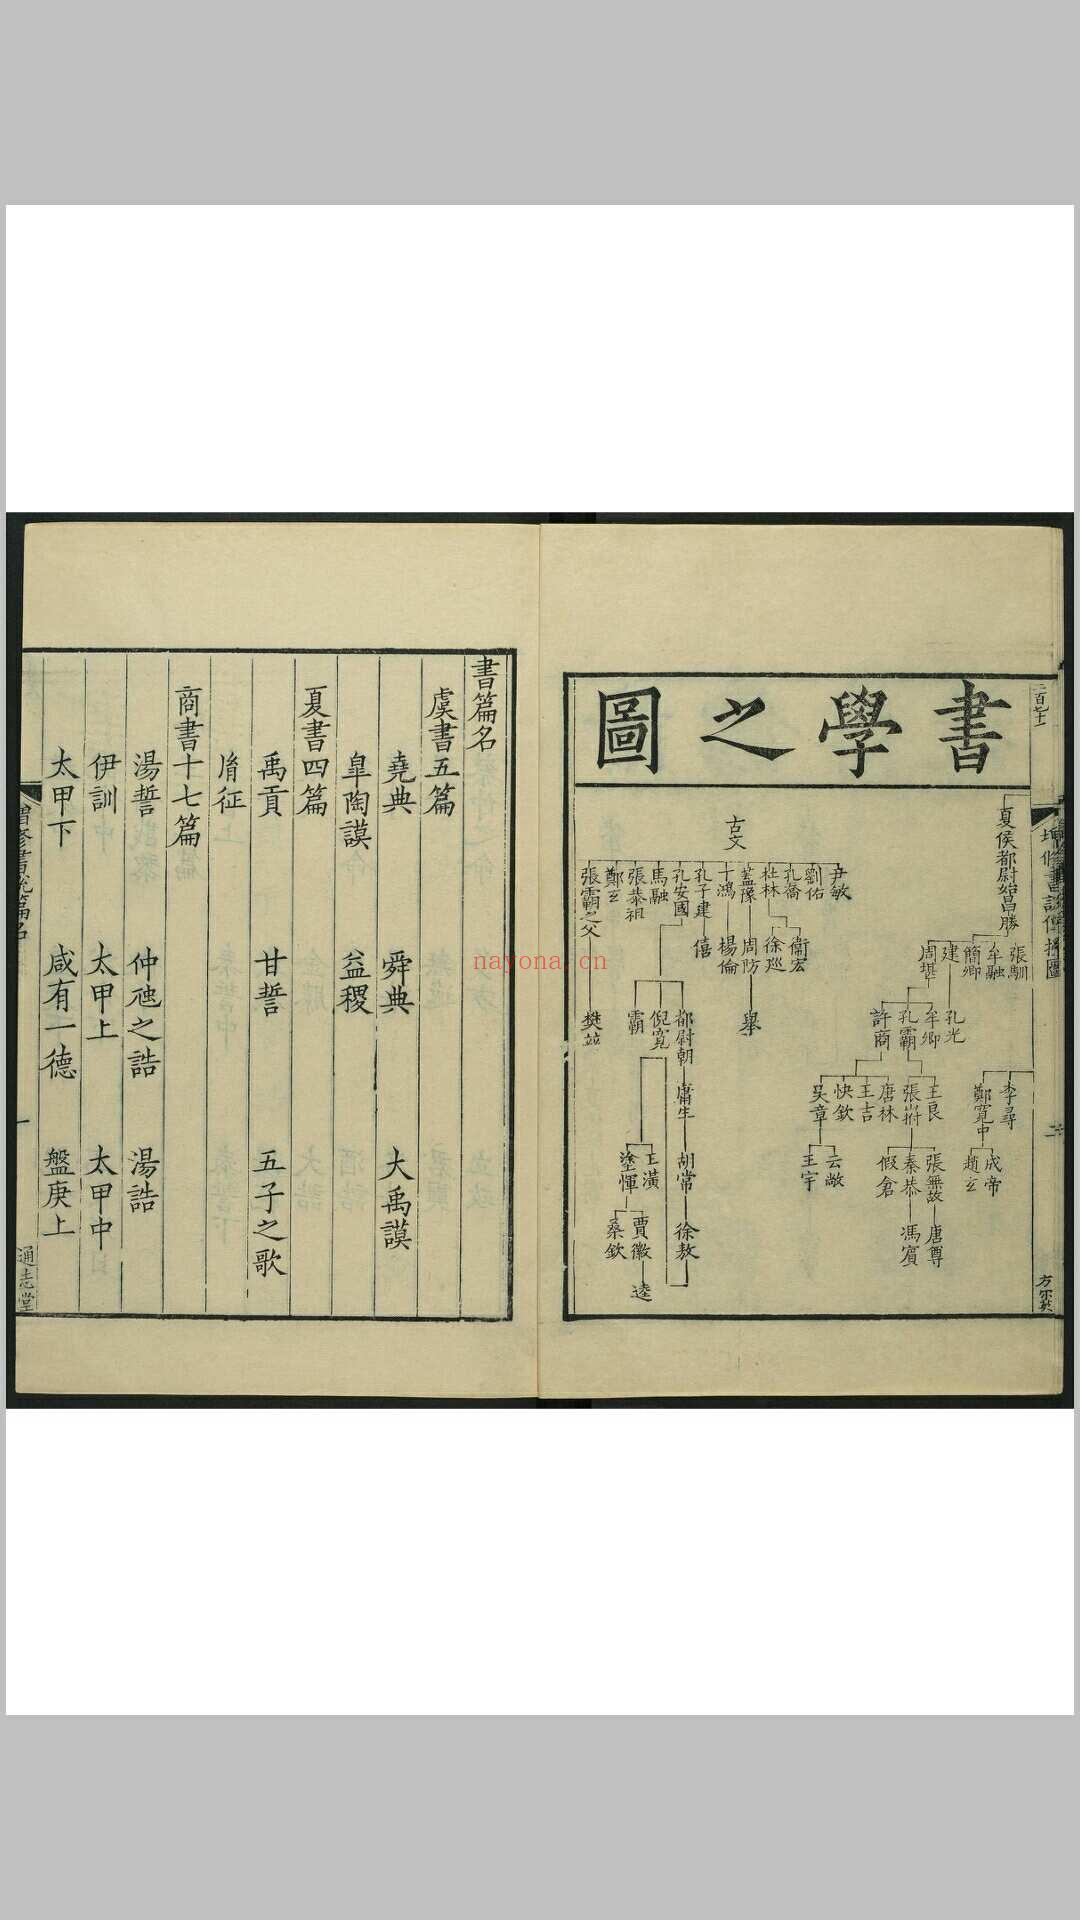 書學之圖
二百七十二
夏侯都尉始昌勝
張馴
牟融
簡卿
建
孔光
周堪
牟卿
孔霸
許商
李尋
鄭寬中
成帝
趙玄
王良
張
唐林
王吉
快欽
吴章
張無故
唐尊
秦恭
馮賓
假倉
云敞
王宇
古文
尹敏
劉佑
孔喬
杜林
衞宏
徐廵
蓋豫
周防
舉
丁鴻
楊倫
孔子建
僖
孔安國
都尉朝
庸生
胡常
徐敖
倪寬
霸
王潢
塗惲
賈徽
逵
桑欽
馬融
張恭祖
鄭玄
張霸之父
樊並
方尔英
書篇名
虞書五篇
堯典 舜典 大禹謨
臯陶謨 益稷
夏書四篇
禹貢 甘誓 五子之歌
胤征
商書十七篇
湯誓 仲虺之誥 湯誥
伊訓 太甲上 太甲中
太甲下 咸有一德 盤庚上
增修書說篇名
一
通志堂
nayona.cn